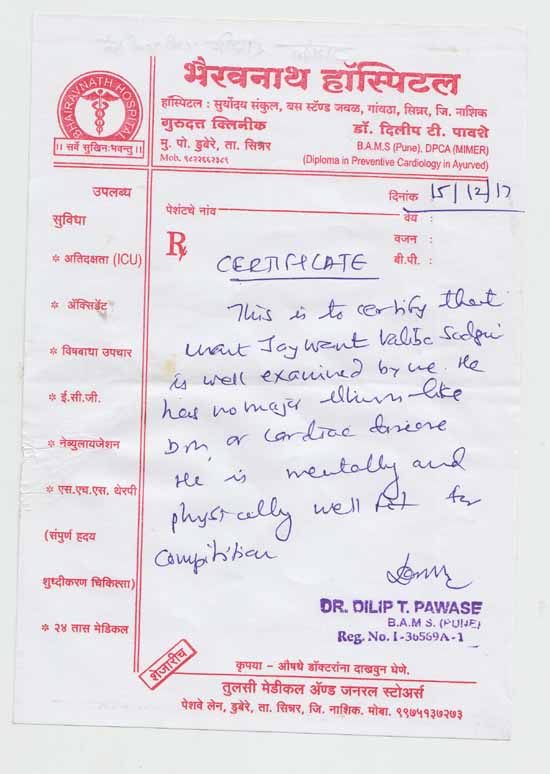 भैरवनाथ हॉस्पिटल
BHAIRAVNATH HOSPITAL
|| सर्वे सुखिनःभवन्तु ||
हॉस्पिटल : सुर्योदय संकुल, बस स्टॅण्ड जवळ, गांवठा, सिन्नर, जि. नाशिक
गुरुदत्त क्लिनीक डॉ. दिलीप टी. पावशे
मु. पो. डुबेरे, ता. सिन्नर B.A.M.S (Pune), DPCA (MIMER)
Mob. ९८२२६६२३८९ (Diploma in Preventive Cardiology in Ayurved)
दिनांक 15/12/17
पेशंटचे नांव
वय :
वजन :
बी.पी. :
उपलब्ध
सुविधा
* अतिदक्षता (ICU)
* ॲक्सिडेंट
* विषबाधा उपचार
* ई.सी.जी.
* नेब्युलायजेशन
* एस.एच.एस. थेरपी
(संपुर्ण हृदय
शुध्दीकरण चिकित्सा)
* २४ तास मेडिकल
Rx
CERTIFICATE
This is to certify that
Jaywant
is well examined by me. He
has no major illness like
DM, or cardiac disease
He is mentally and
physically well fit for
compitition
DR. DILIP T. PAWASE
B.A.M.S. (PUNE)
Reg. No. I-36569A-1
शेजारीच
कृपया - औषधे डॉक्टरांना दाखवुन घेणे.
तुलसी मेडीकल ॲण्ड जनरल स्टोअर्स
पेशवे लेन, डुबेरे, ता. सिन्नर, जि. नाशिक. मोबा. ९९७५१३७२७३